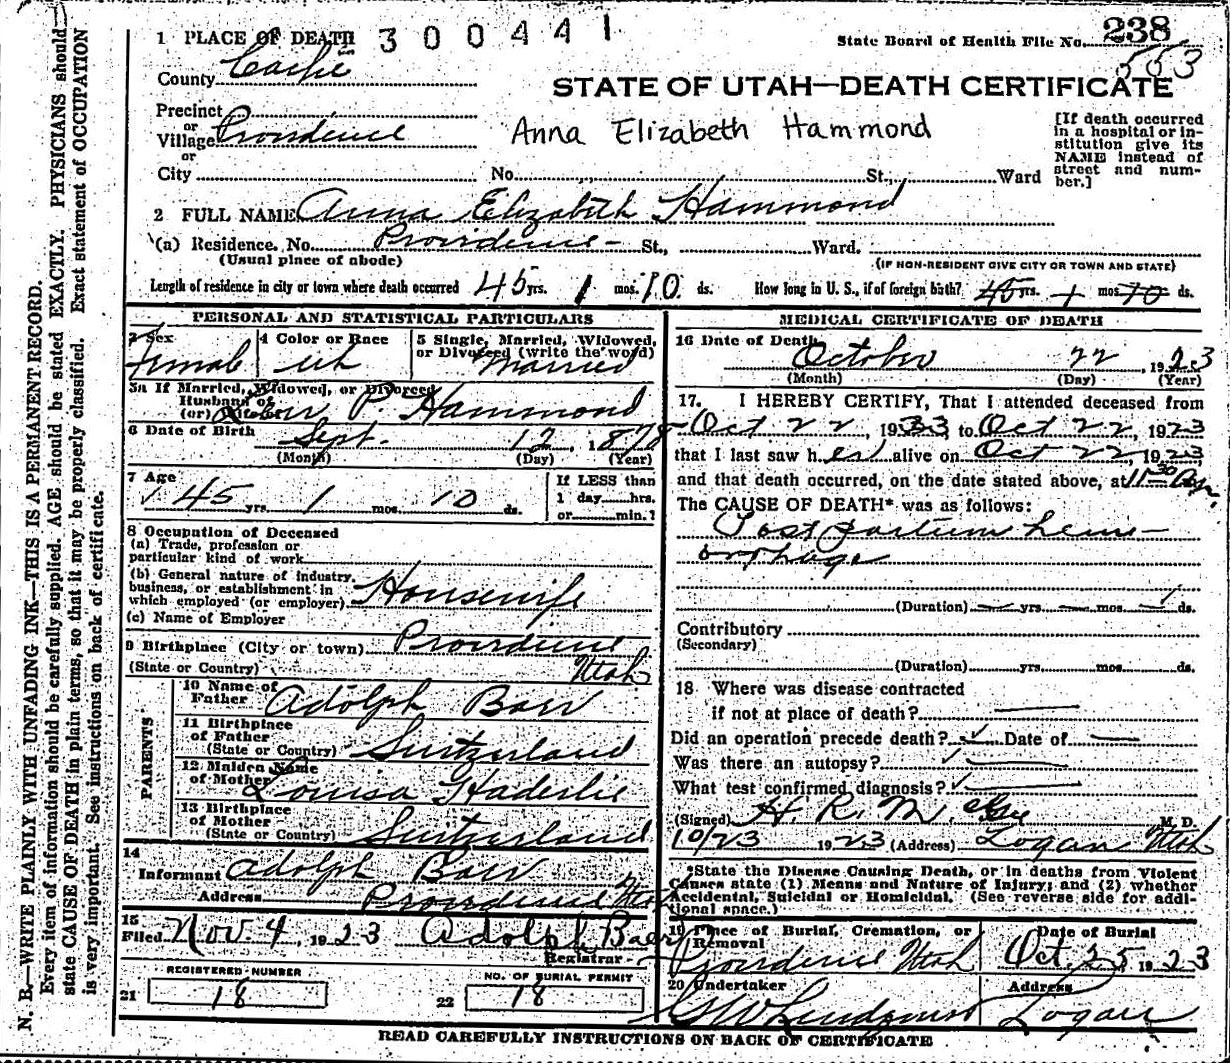 1 PLACE OF DEATH 300441
State Board of Health File No. 238
553
County Cache
STATE OF UTAH—DEATH CERTIFICATE
Precinct
or
Village Providence
Anna Elizabeth Hammond
[If death occurred
in a hospital or in-
stitution give its
NAME instead of
street and num-
ber.]
or
City No. St., Ward
2 FULL NAME Anna Elizabeth Hammond
(a) Residence. No. Providence St., Ward.
(Usual place of abode) (IF NON-RESIDENT GIVE CITY OR TOWN AND STATE)
Length of residence in city or town where death occurred 45 yrs. 1 mos. 10 ds. How long in U. S., if of foreign birth? 45 yrs. 1 mos 10 ds.
PERSONAL AND STATISTICAL PARTICULARS
3 Sex 4 Color or Race 5 Single, Married, Widowed,
or Divorced (write the word)
Female wh Married
5a If Married, Widowed, or Divorced
Husband of
(or) Wife of P. Hammond
6 Date of Birth Sept. 12, 1878
(Month) (Day) (Year)
7 Age If LESS than
45 yrs. 1 mos. 10 ds. 1 day hrs.
or min.?
8 Occupation of Deceased
(a) Trade, profession or
particular kind of work
(b) General nature of industry,
business, or establishment in
which employed (or employer) Housewife
(c) Name of Employer
9 Birthplace (City or town) Providence
(State or Country) Utah
PARENTS
10 Name of
Father Adolph Baer
11 Birthplace
of Father
(State or Country) Switzerland
12 Maiden Name
of Mother Louisa Haderlie
13 Birthplace
of Mother
(State or Country) Switzerland
14
Informant Adolph Baer
Address Providence Utah
15
Filed Nov. 4, 1923 Adolph Baer
Registrar
REGISTERED NUMBER NO. OF BURIAL PERMIT
21 18 22 18
MEDICAL CERTIFICATE OF DEATH
16 Date of Death
October 22, 1923
(Month) (Day) (Year)
17. I HEREBY CERTIFY, That I attended deceased from
Oct 22, 1923, to Oct 22, 1923
that I last saw her alive on Oct 22, 1923,
and that death occurred, on the date stated above, at 11:30
The CAUSE OF DEATH* was as follows:
Post partum hem-
orrhage
(Duration) yrs. mos. 1 ds.
Contributory
(Secondary)
(Duration) yrs. mos. ds.
18 Where was disease contracted
if not at place of death?
Did an operation precede death? Date of
Was there an autopsy?
What test confirmed diagnosis?
(Signed) H. R. M. D.
10/23 1923 (Address) Logan Utah
*State the Disease Causing Death, or in deaths from Violent
Causes state (1) Means and Nature of Injury; and (2) whether
Accidental, Suicidal or Homicidal. (See reverse side for addi-
tional space.)
19 Place of Burial, Cremation, or Removal Date of Burial
Providence Utah Oct. 25, 1923
20 Undertaker Address
Logan
READ CAREFULLY INSTRUCTIONS ON BACK OF CERTIFICATE
N. B.—WRITE PLAINLY WITH UNFADING INK—THIS IS A PERMANENT RECORD.
Every item of information should be carefully supplied. AGE should be stated EXACTLY. PHYSICIANS should
state CAUSE OF DEATH in plain terms, so that it may be properly classified. Exact statement of OCCUPATION
is very important. See instructions on back of certificate.